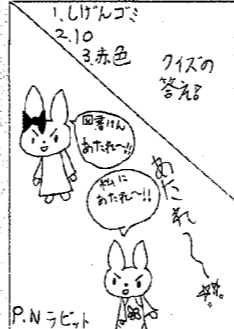 1.しげんゴミ
2.10
3.赤色
クイズの
答え!
図書けん
あたれ〜!!
私に
あたれ〜!!
あたれ〜
P.N ラビット